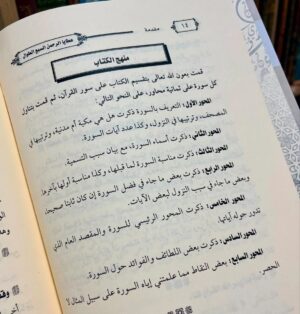 عطايا الرحمن للسبع الطوال
مقدمة
١٤
منهج الكتاب
قمت بعون الله تعالى بتقسيم الكتاب على سور القرآن، ثم قمت بتناول
كل سورة على ثمانية محاور، على النحو التالي:
المحور الأول: التعريف بالسورة ذكرت هل هي مكية أم مدنية، وترتيبها في
المصحف، وترتيبها في النزول، وكذا عدد آيات السورة.
المحور الثاني: ذكرت أسماء السورة، مع بيان سبب التسمية.
المحور الثالث: ذكرت مناسبة السورة لما قبلها، وكذا مناسبة أولها بآخرها.
المحور الرابع: ذكرت بعض ما جاء في فضل السورة إن كان ثابتا صحيحا،
وبعض ما جاء في سبب النزول لبعض الآيات.
المحور الخامس: ذكرت المحور الرئيسي للسورة والمقصد العام الذي
تدور حوله آياتها.
المحور السادس: ذكرت بعض اللطائف والفوائد حول السورة.
المحور السابع: بعض النقاط مما علمتني إياه السورة على سبيل المثال لا
الحصر.